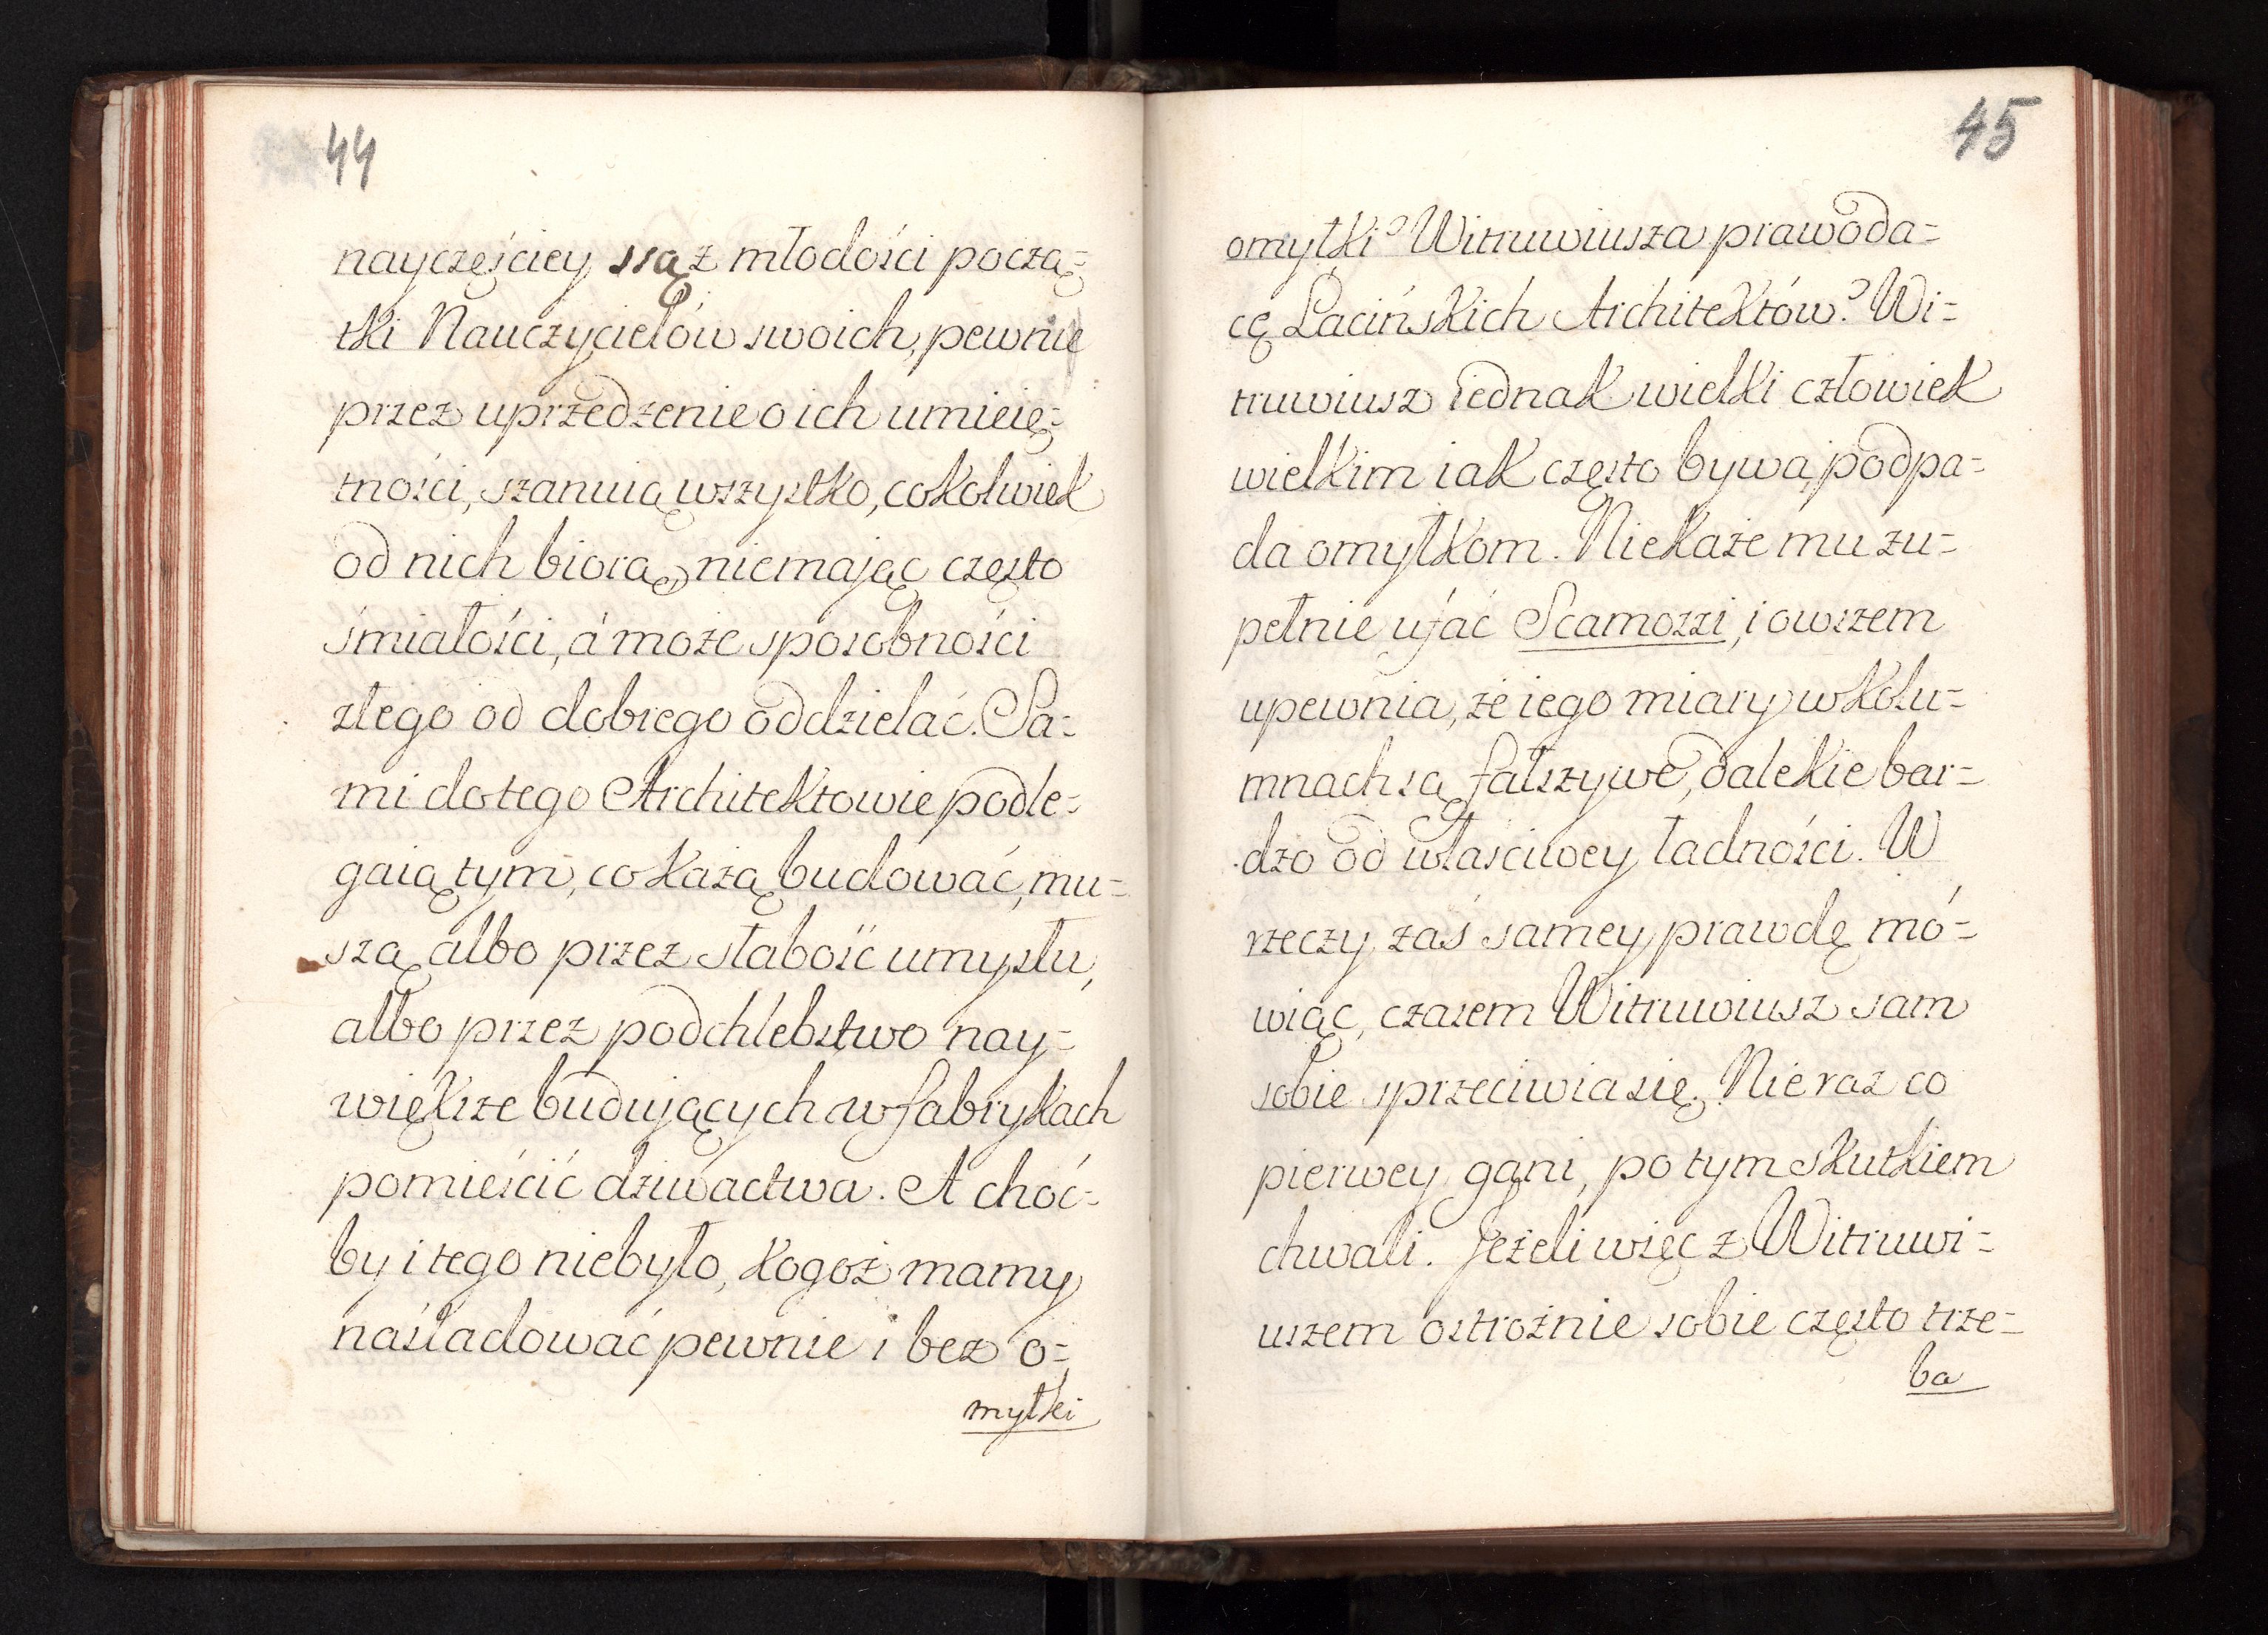 44
nayczęściey ssą z młodości począ=
tki Nauczycielów swoich, pewnie
przez uprzedzenie o ich umieię=
tności, szanuią wszystko, cokolwiek
od nich biorą, niemając często
śmiałości, á może sposobności
złego od dobrego oddzielać. Sa=
mi do tego Architektowie podle=
gaią tym, co każą budować, mu=
szą albo przez słabość umysłu,
albo przez podchlebstwo nay=
większe budujących w fabrykach
pomieścić dziwactwa. A choć=
by i tego niebyło, kogoż mamy
naśladować pewnie i bez o=
myłki
45
omyłki? Witruwiusza prawoda=
cę Łacińskich Architektów? Wi=
truwiusz iednak wielki człowiek
wielkim iak często bywa, podpa=
da omyłkom. Niekaże mu zu=
pełnie ufać Scamozzi, i owszem
upewnia, że iego miary w kolu=
mnach są fałszywe, dalekie bar=
dzo od właściwey ładności. W
rzeczy zaś samey prawdę mó=
wiąc, czasem Witruwiusz sam
sobie sprzeciwia się. Nie raz co
pierwey gani, po tym skutkiem
chwali. Jeżeli więc z Witruwi=
uszem ostrożnie sobie często trze=
ba